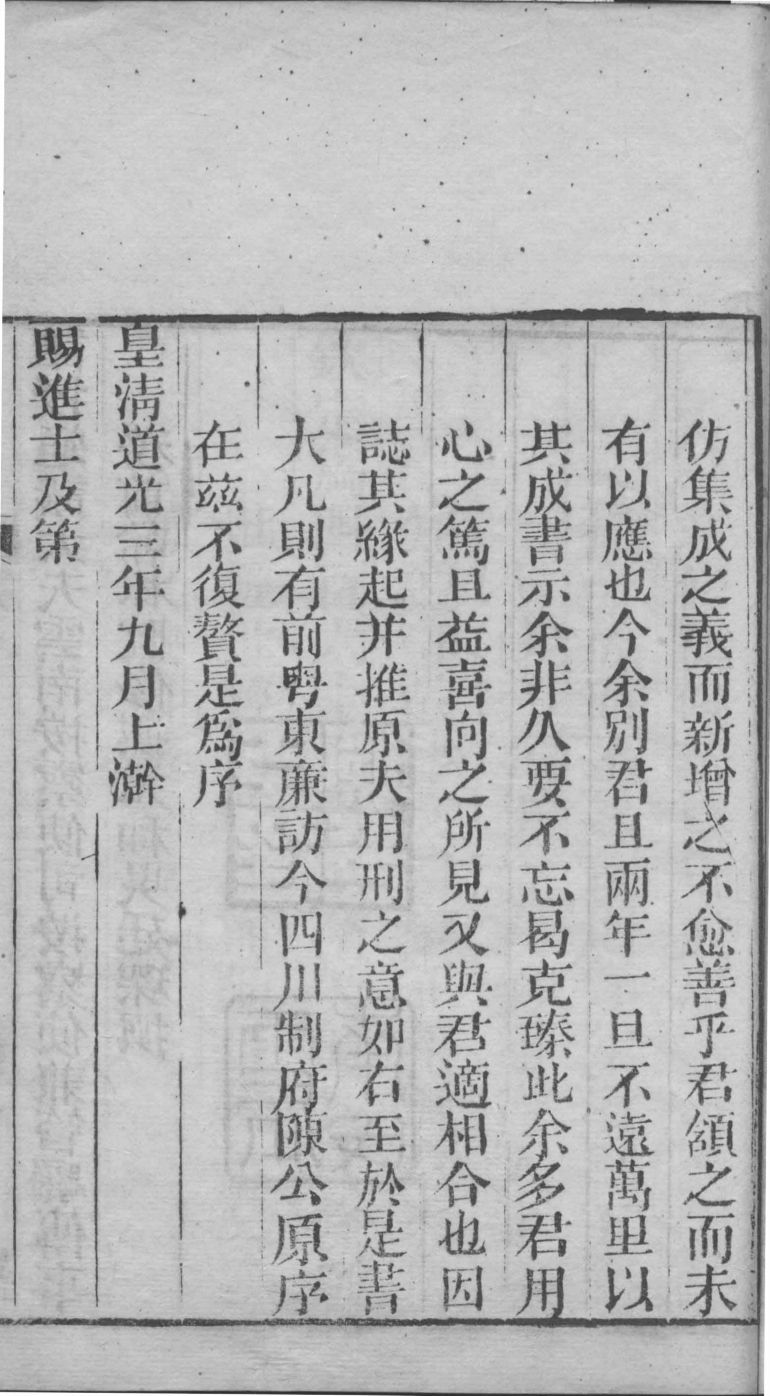 仿集成之義而新增之不愈善乎君頷之而未
有以應也今余别君且兩年一旦不遠萬里以
其成書示余非久要不忘曷克臻此余多君用
心之篤且益喜向之所見又與君適相合也因
誌其緣起并推原夫用刑之意如右至於是書
大凡則有前粤東廉訪今四川制府陳公原序
在茲不復贅是爲序
皇清道光三年九月上澣
賜進士及第